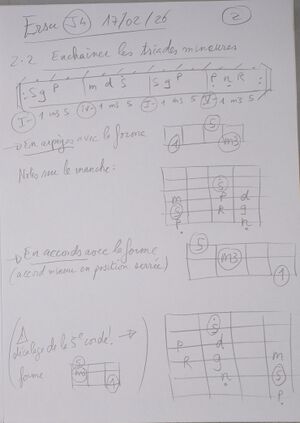 Ersu S4 17/02/26 2
2.2 Enchaîner les triades mineures
: S g P | m d S | S g P | P n R :
I- 1 m3 5 IV- 1 m3 5 I- 1 m3 5 V- 1 m3 5
→ En arpèges avec la forme
5
1 m3
Notes sur le manche:
m S d
S P g
P R n
→ En accords avec la forme
(accord mineur en position serrée)
5
m3
1
(⚠ décalage de la 5e corde! →
forme
5
m3
1
S
P d m
R g S
n P